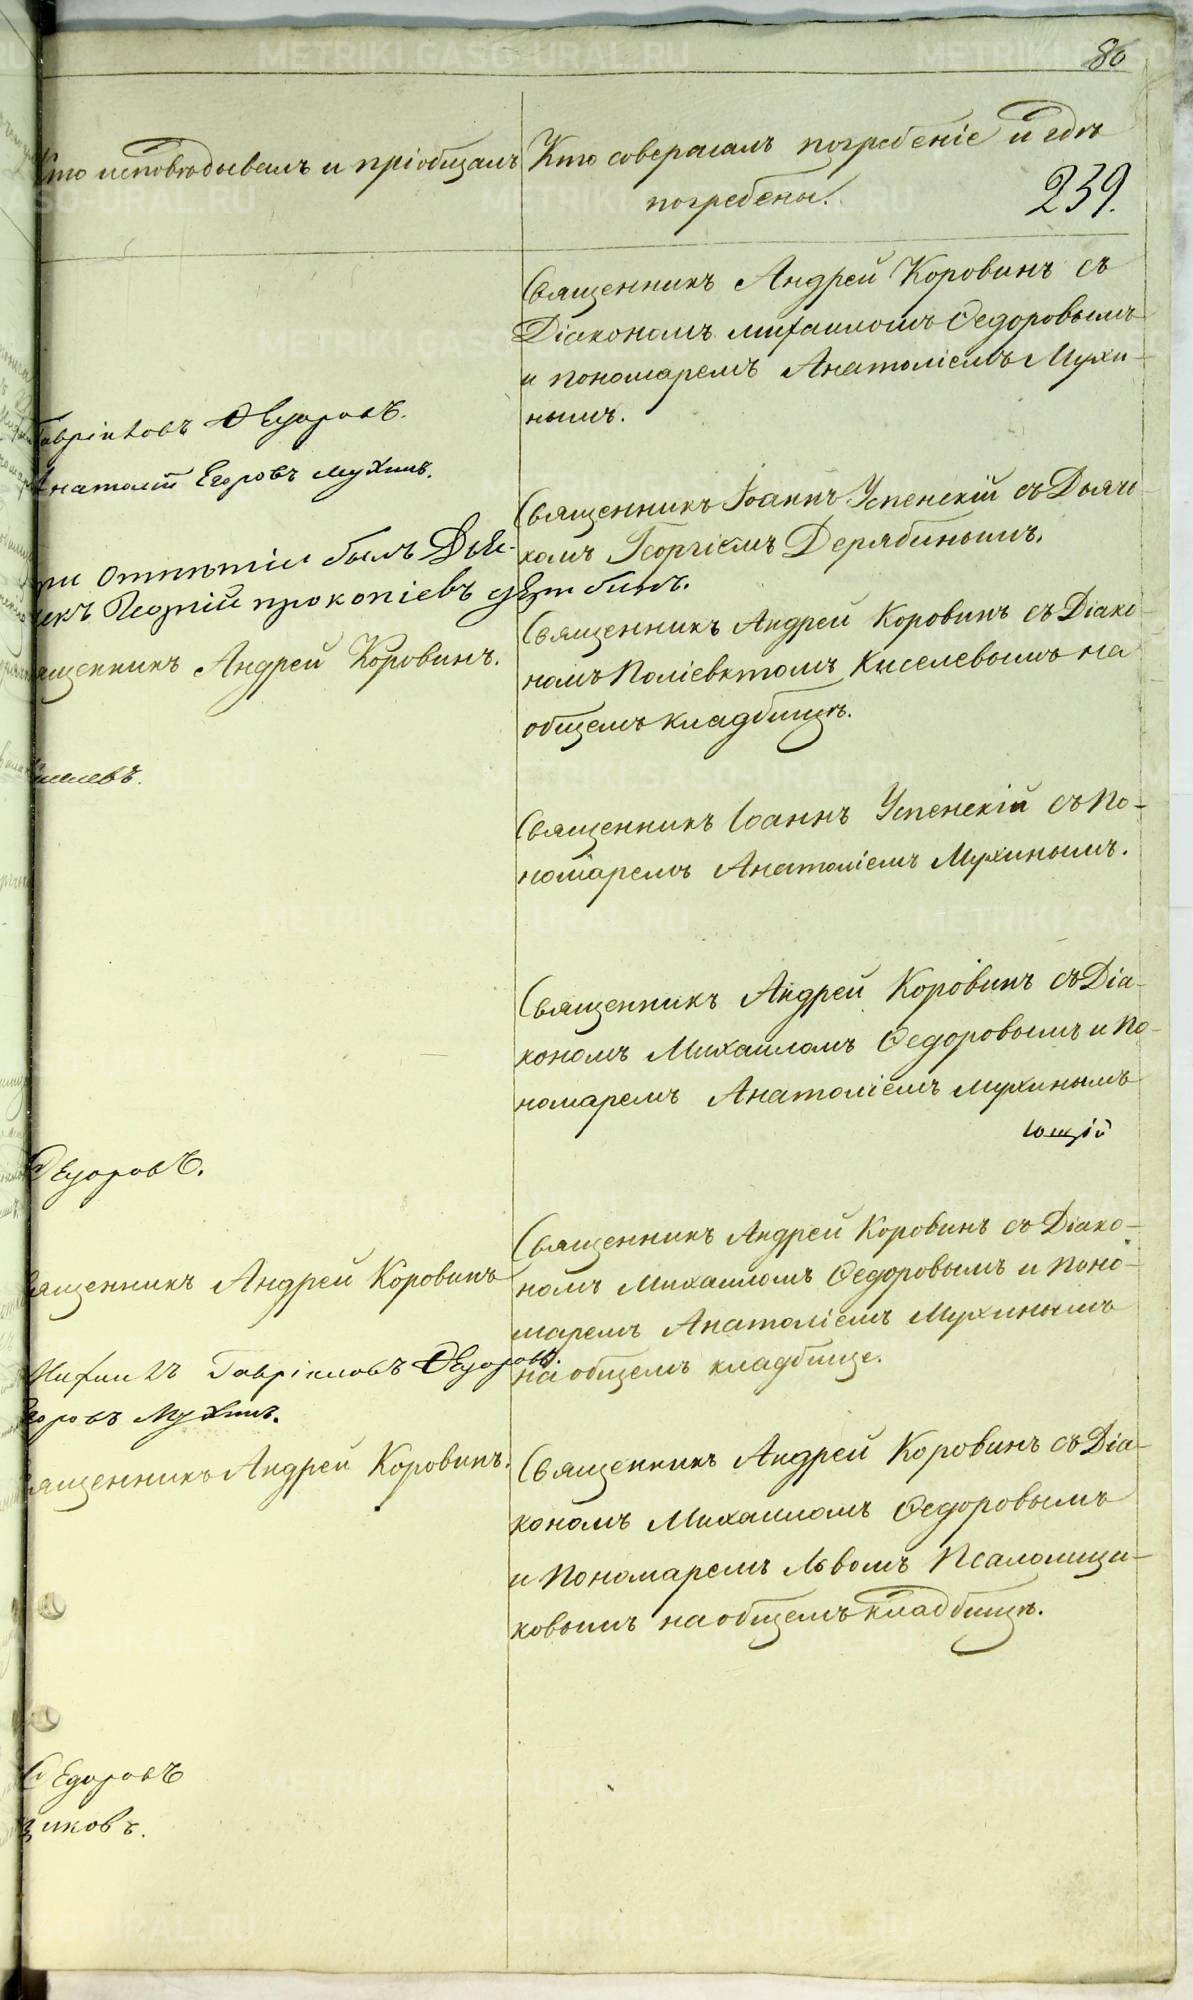 80
Кто исповѣдывалъ и пріобщалъ
Кто совершалъ погребеніе и гдѣ
погребены.
239.
Священникъ Андрей Коровинъ съ
Діакономъ Михаиломъ Ѳедоровымъ
и пономаремъ Анатоліемъ Мухи-
нымъ.
Гавріиловъ Ѳедоровъ.
Анатолій Егоровъ Мухинъ.
Священникъ Іоаннъ Успенскій съ Дьяч-
комъ Георгіемъ Дерябинымъ.
при отпѣтіи былъ Дья-
чекъ Георгій Прокопіевъ Дерябинъ.
Священникъ Андрей Коровинъ съ Діако-
номъ Поліевктомъ Киселевымъ на
общемъ кладбищѣ.
Священникъ Андрей Коровинъ.
Киселевъ.
Священникъ Іоаннъ Успенскій съ По-
номаремъ Анатоліемъ Мухинымъ.
Священникъ Андрей Коровинъ съ Діа-
кономъ Михаиломъ Ѳедоровымъ и По-
номаремъ Анатоліемъ Мухинымъ
ющій
Ѳедоровъ.
Священникъ Андрей Коровинъ съ Діако-
номъ Михаиломъ Ѳедоровымъ и Поно-
маремъ Анатоліемъ Мухинымъ
на общемъ кладбище.
Священникъ Андрей Коровинъ
Михаилъ Гавріиловъ Ѳедоровъ.
Егоровъ Мухинъ.
Священникъ Андрей Коровинъ.
Священникъ Андрей Коровинъ съ Діа-
кономъ Михаиломъ Ѳедоровымъ
и Пономаремъ Львомъ Псаломщи-
ковымъ на общемъ кладбищѣ.
Ѳедоровъ
щиковъ.
METRIKI.GASO-URAL.RU